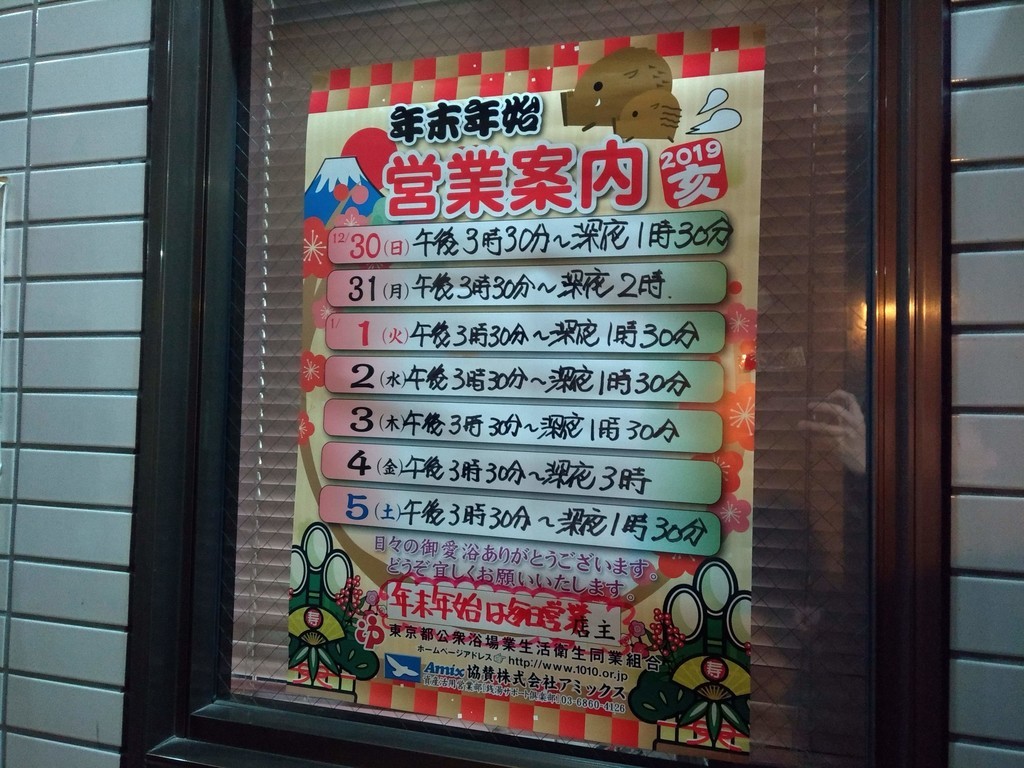 年末年始
営業案内
2019
亥
12/30(日)午後3時30分~深夜1時30分
31(月)午後3時30分~深夜2時.
1/1(火)午後3時30分~深夜1時30分
2(水)午後3時30分~深夜1時30分
3(木)午後3時30分~深夜1時30分
4(金)午後3時30分~深夜3時
5(土)午後3時30分~深夜1時30分
日々の御愛浴ありがとうございます。
どうぞ宜しくお願いいたします。
年末年始は毎日営業
店主
ゆ
東京都公衆浴場業生活衛生同業組合
ホームページアドレス☞http://www.1010.or.jp
Amix協賛株式会社アミックス
資産活用営業部(銭湯サポート倶楽部)03-6860-4126
寿
寿